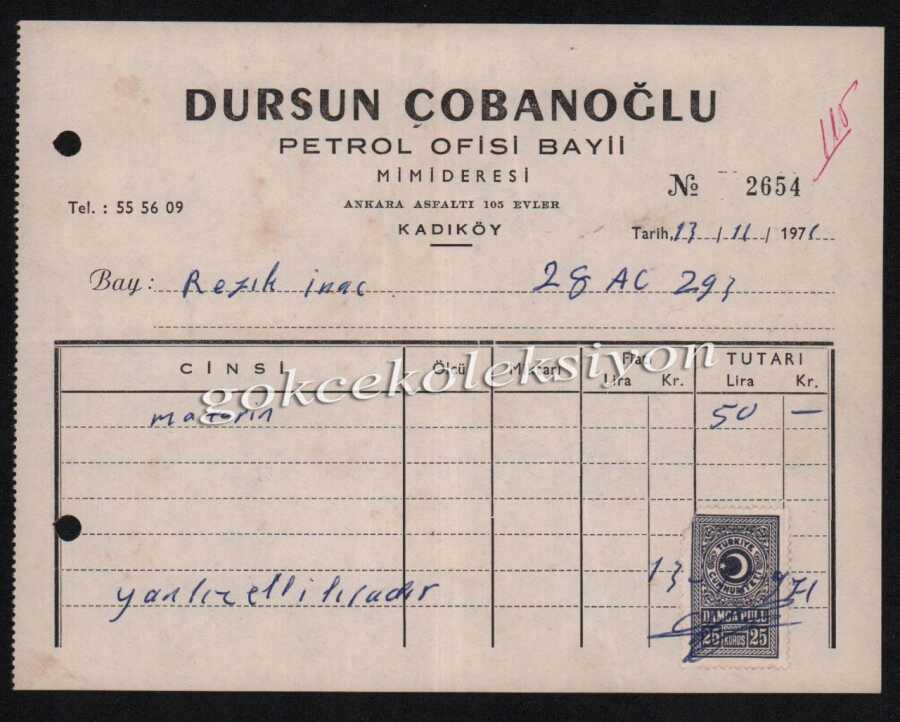 DURSUN ÇOBANOĞLU
PETROL OFİSİ BAYİİ
MİMİDERESİ
ANKARA ASFALTI 105 EVLER
KADIKÖY
Tel. : 55 56 09
115
№ 2654
Tarih, 13 / 11 / 1971
Bay : Rezık inac 28 AC 293
CİNSİ Ölçü Miktarı Fiatı Lira Kr. TUTARI Lira Kr.
gokcekoleksiyon
50 —
yanlız elli liradır
13 971
TÜRKİYE CUMHURİYETİ
DAMGA PULU
25 KURUŞ 25